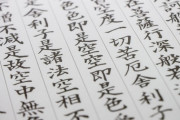 薩行深般若
空度一切苦厄舍利子
色即是空空即是色
利子是諸法空相不
不減是故空中無